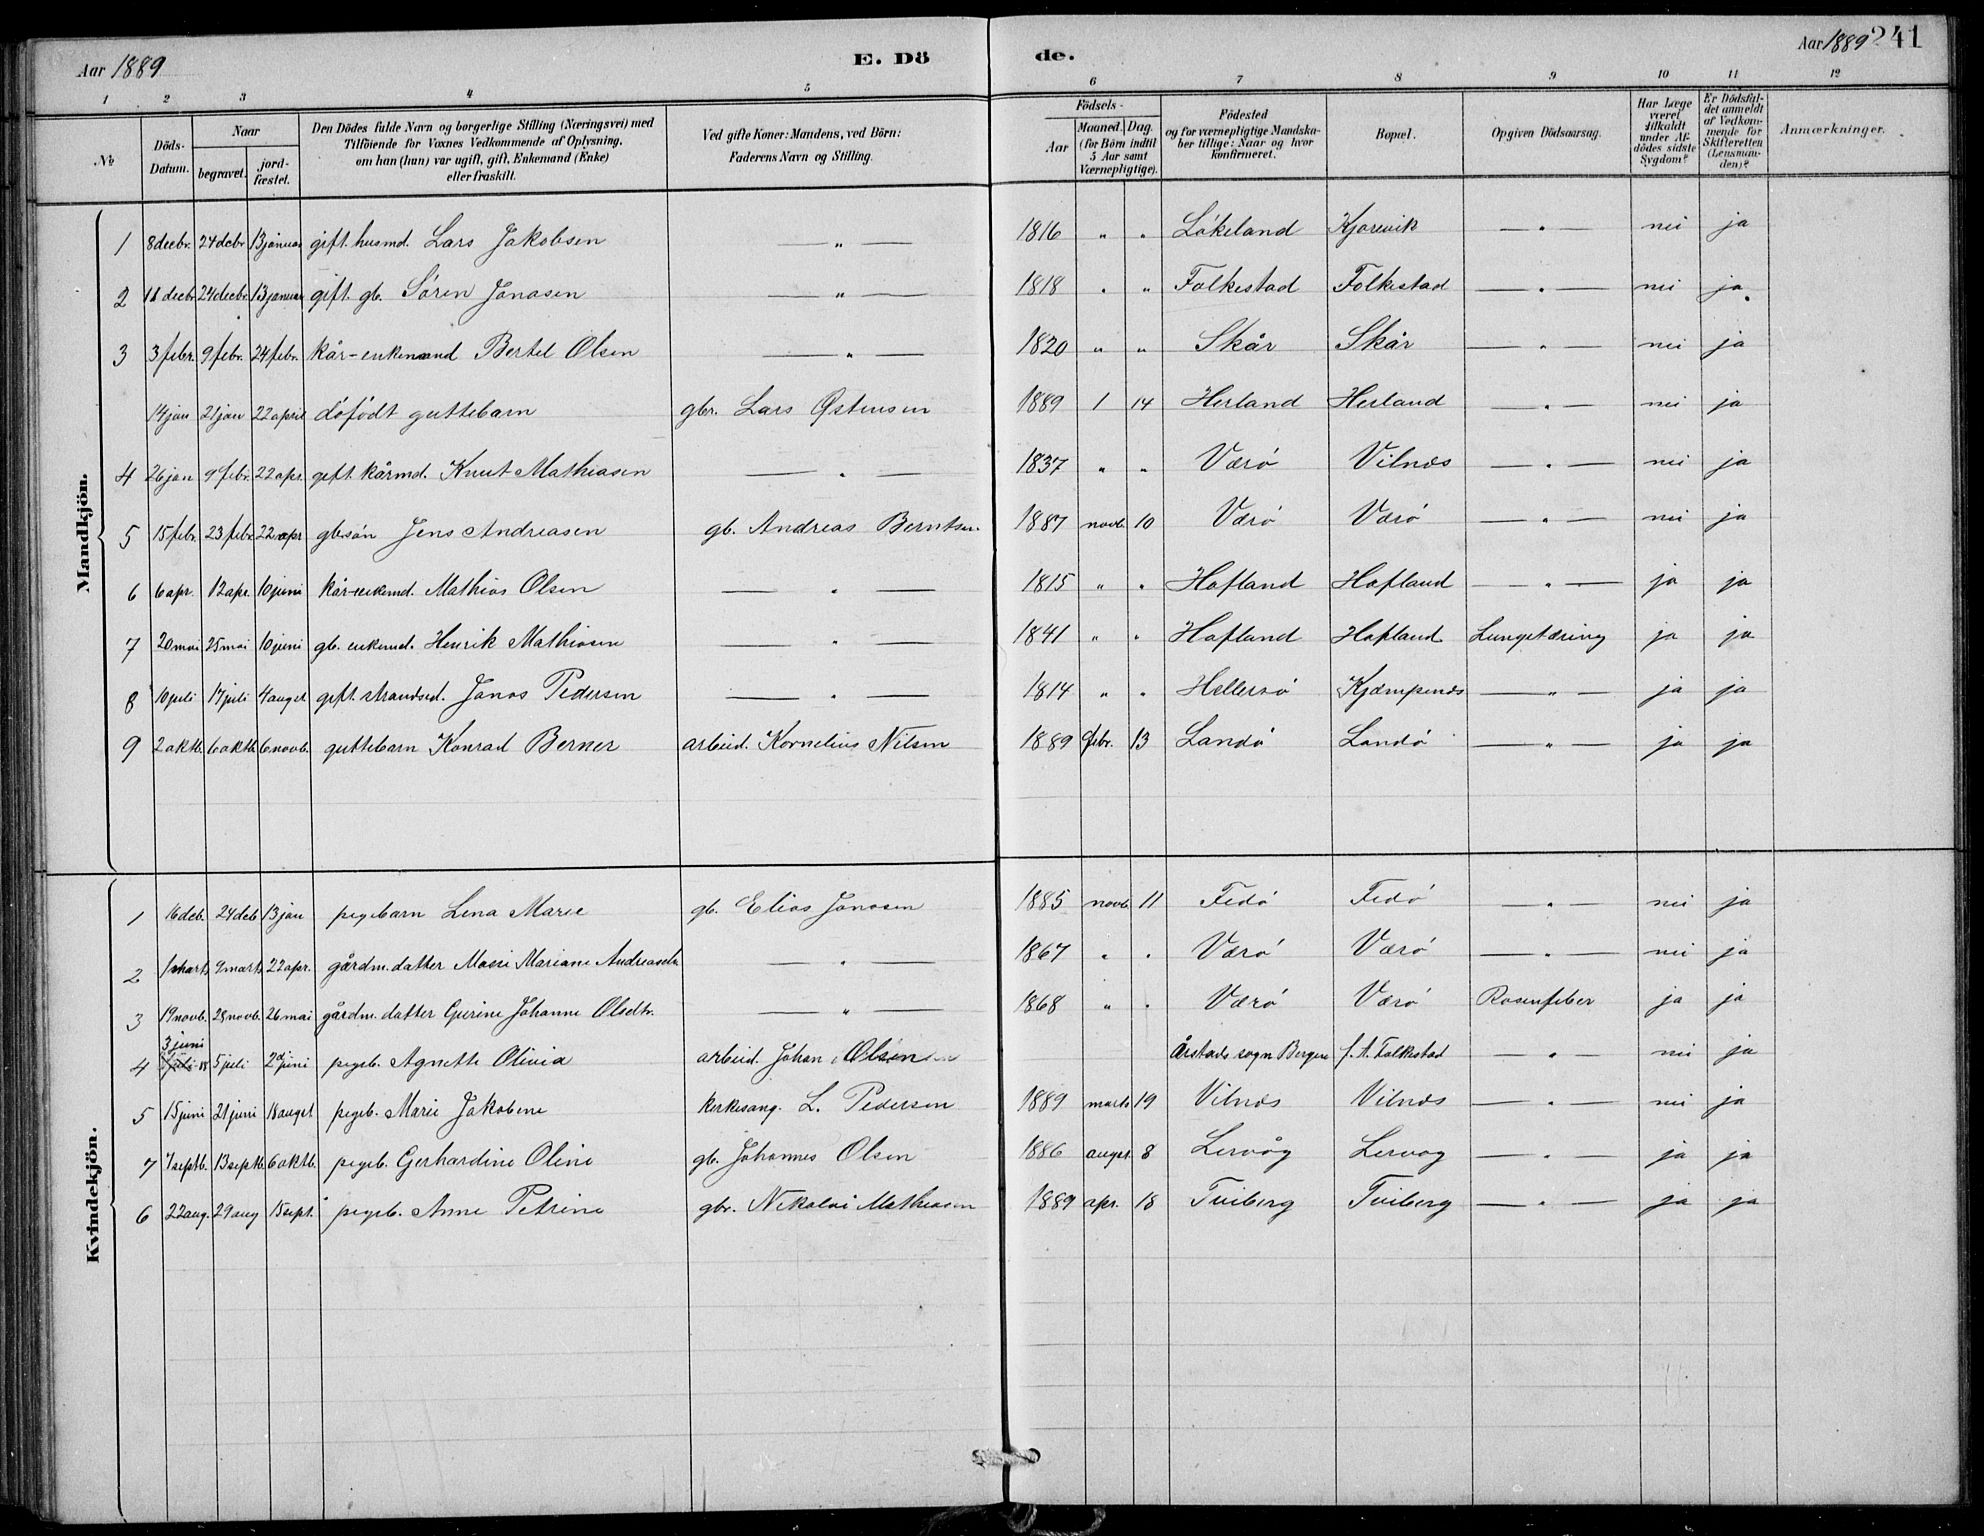 Aar 1889
E. Dö
de.
Aar 1889
241
1 2 3 4 5 6 7 8 9 10 11 12
№
Döds-Datum.
Naar
begravet.
jord-fæstet.
Den Dödes fulde Navn og borgerlige Stilling (Næringsvei) med
Tilföiende for Voxnes Vedkommende af Oplysning,
om han (hun) var ugift, gift, Enkemand (Enke)
eller fraskilt.
Ved gifte Koner: Mandens, ved Börn:
Faderens Navn og Stilling.
Födsels-
Aar
Maaned. Dag.
(for Börn indtil
5 Aar samt
Værnepligtige).
Födested
og for værnepligtige Mandska-
ber tillige: Naar og hvor
konfirmeret.
Bopæl.
Opgiven Dödsaarsag.
Har Læge
været
tilkaldt
under Af-
dödes sidste
Sygdom?
Er Dödsfal-
det anmeldt
af Vedkom-
mende for
Skifteretten
(Lensman-
den)?
Anmærkninger.
Mandkjön.
1 8 decbr. 24 decbr. 13 januar gift. husmd. Lars Jakobsen — " — 1816 " " Løkeland Kjorevik — " — nei ja
2 18 decbr. 24 decbr. 13 januar gift. gb. Sören Jonasen — " — 1818 " " Folkestad Folkestad — " — nei ja
3 3 febr. 9 febr. 24 febr. kår-enkemand Bertel Olsen — " — 1820 " " Skår Skår — " — nei ja
14 jan 21 jan 22 april döfödt guttebarn gbr. Lars Østensen 1889 1 14 Herland Herland — " — nei ja
4 26 jan 9 febr. 22 apr. gift. kårmd. Knut Mathiasen — " — 1837 " " Værö Vilnæs — " — nei ja
5 15 febr. 23 febr. 22 apr gb. sön Jens Andreasen gb. Andreas Berntsen. 1887 novb. 10 Værö Værö — " — nei ja
6 6 apr. 12 apr. 10 juni kår-enkemd. Mathias Olsen — " — 1815 " " Hafland Hafland — " — ja ja
7 20 mai 25 mai 10 juni gb. enkemd. Henrik Mathiasen — " — 1841 " " Hafland Hafland Lungetæring ja ja
8 10 juli 17 juli 4 augst gift. strandsd. Jonas Pedersen — " — 1814 " " Hellersö Kjempenæs — " — ja ja
9 2 oktb. 6 oktb. 6 novb. guttebarn Konrad Berner arbeid. Kornelius Nilsen 1889 febr. 13 Landö Landö — " — ja ja
Kvindekjön.
1 16 deb. 24 deb 13 jan pigebarn Lena Marie gb. Elias Jonasen 1885 novb. 11 Fedö Fedö — " — nei ja
2 1 marts 9 marts 22 apr. gårdm. datter Mariane Andreasdtr — " — 1867 " " Værö Værö — " — nei ja
3 19 novb. 28 novb. 26 mai gårdm. datter Gurine Johanne Olsdtr. — " — 1868 " " Værö Værö Rosenfeber ja ja
3 juni
4 5 juli 2d juni pigeb. Agnette Olivia arbeid. Johan Olsen Årstads sogn Bergen f. t. Folkestad — " nei ja
5 15 juni 21 juni 18 augst pigeb. Marie Jakobene kirkesang. L. Pedersen 1889 marts 19 Vilnæs Vilnæs — " — nei ja
7 7 septb. 13 septb. 6 oktb. pigeb. Gerhardine Oline gb. Johannes Olsen 1886 augst. 8 Lervåg Lervåg — " — ja ja
6 22 aug. 29 aug 15 sept. pigeb. Anne Petrine gbr. Nikolai Mathiasen 1889 apr. 18 Tviberg Tviberg — " — ja ja